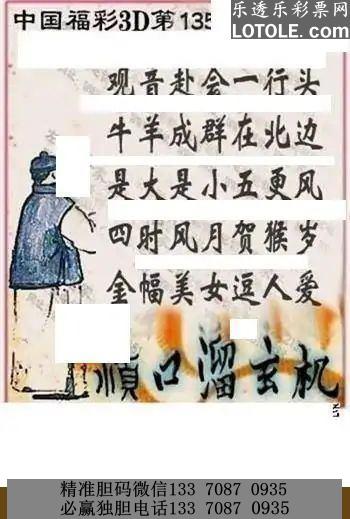 乐透乐彩票网
LOTOLE.COM
中国福彩3D第135
观音赴会一行头
牛羊成群在北边
是大是小五更风
四时风月贺猴岁
金幅美女逗人爱
顺口溜玄机
精准胆码微信133 7087 0935
必赢独胆电话133 7087 0935